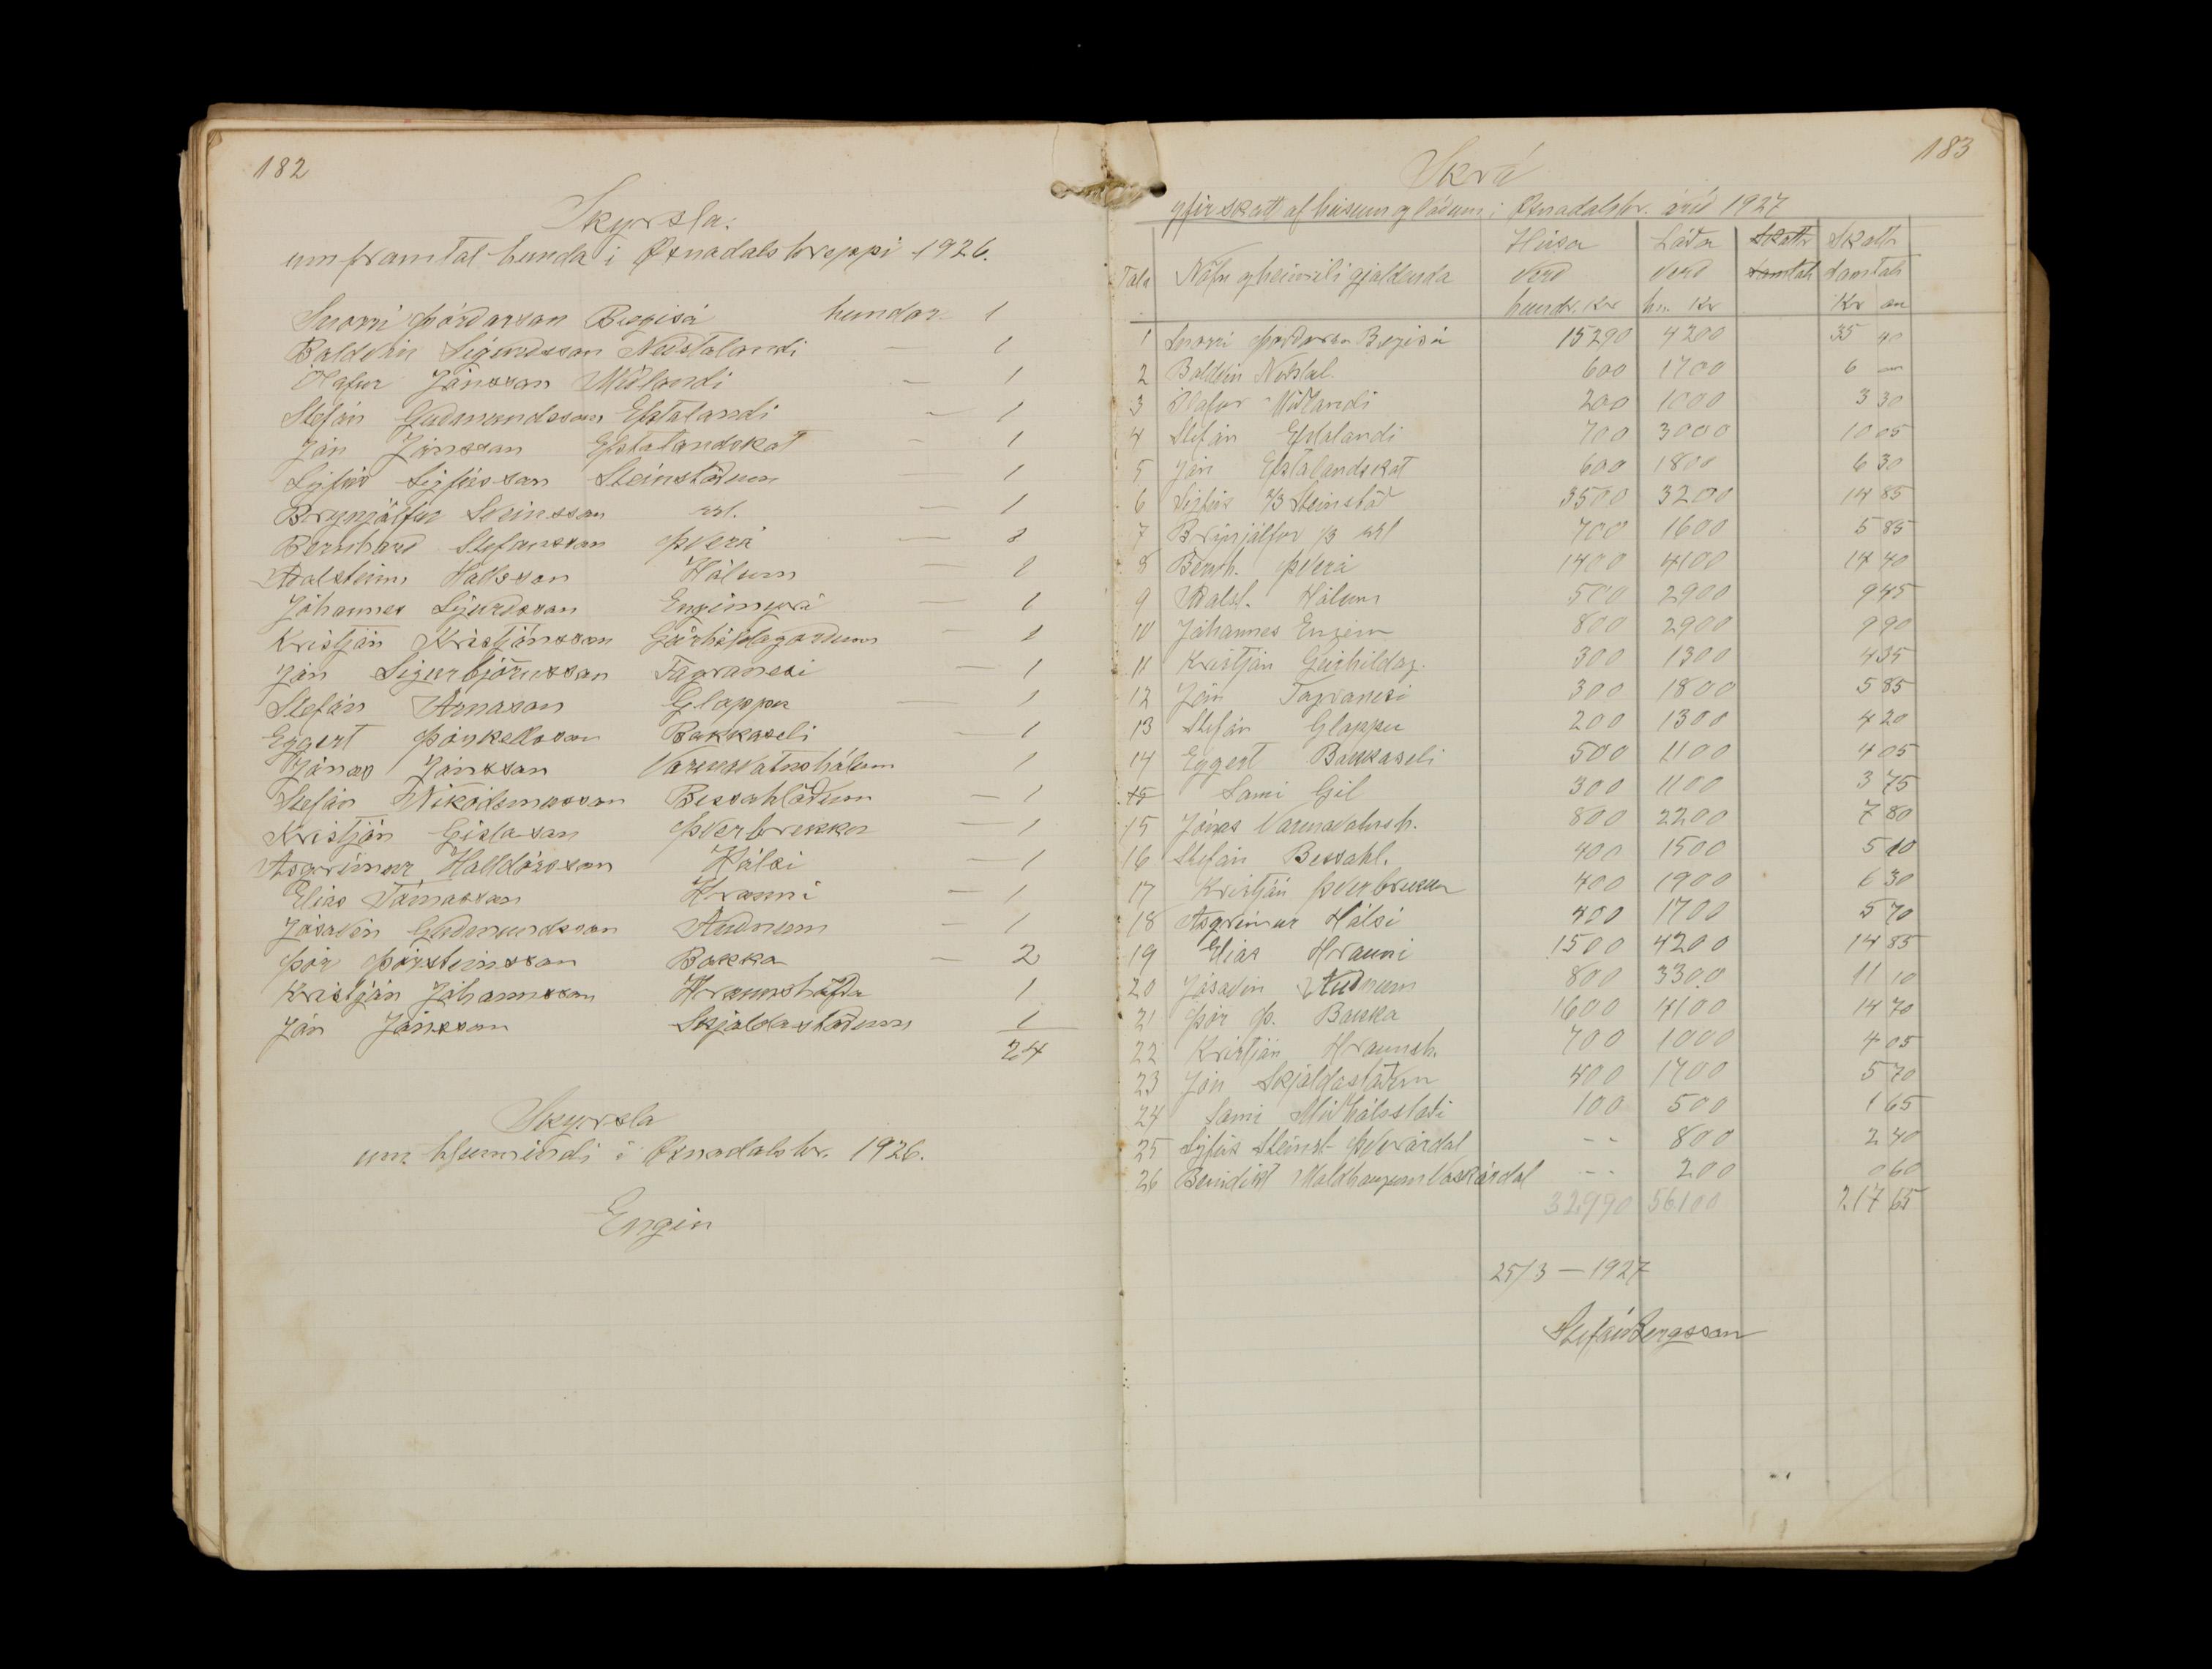 182
Skýrsla:
um framtal hunda í Öxnadalshreppi 1926.
Snorri Þórðarson Bægisá hundar 1
Baldvin Sigurdsson Neðstalandi — 1
Ólafur Jónsson Miðlandi — 1
Stefán Guðmundsson Efstalandi — 1
Jón Jónsson Efstalandskot — 1
Sigfús Sigfússon Steinstöðum — 1
Brynjólfur Sveinsson s.st. — 1
Bernharð Stefánsson Þverá — 1
Aðalsteinn Hallsson Hólum — 1
Jóhannes Sigurðsson Engimýri — 1
Kristján Kristjánsson Geirhildagörðum — 1
Jón Sigurbjörnsson Fagranesi — 1
Stefán Árnason Gloppu — 1
Eggert Þorkellsson Bakkaseli — 1
Jónas Jónsson Varmavatnshólum 1
Stefán Nikódemusson Bessahlöðum — 1
Kristján Gíslason Þverbrekku — 1
Ásgrímur Halldórsson Hálsi — 1
Elías Tómasson Hrauni — 1
Jósavin Guðmundsson Auðnum — 1
Þór Þórsteinsson Bakka — 2
Kristján Jóhannsson Hraunshöfða 1
Jón Jónsson Skjaldastöðum 1
24
Skýrsla
um híunnindi í Öxnadalshr. 1926.
Engin
183
Skrá
yfir skatt af húsum og lóðum í Öxnadalshr. árið 1927
Tala Nöfn og heimili gjaldenda Húsa verð hundr. Kr Lóða verð hu. Kr Skattr samtals Skattr samtals Kr au
1 Snorri Þórðarson Bægisá 15290 4200 35 40
2 Baldvin Neðstal. 600 1700 6 —
3 Ólafur Miðlandi 200 1000 3 30
4 Stefán Efstalandi 700 3000 10 05
5 Jón Efstalandskot 600 1800 6 30
6 Sigfús 2/3 Steinstöð 3500 3200 14 85
7 Brynjólfur 1/3 s.st 700 1600 5 85
8 Bernh. Þverá 1400 4100 14 40
9 Aðalst. Hólum 500 2900 9 45
10 Jóhannes Engim 800 2900 9 90
11 Kristján Geirhildag. 300 1300 4 35
12 Jón Fagranesi 300 1800 5 85
13 Stefán Gloppu 200 1300 4 20
14 Eggert Bakkaseli 500 1100 4 05
15 Sami Gil 300 1100 3 75
15 Jónas Varmavatnsh. 800 2200 7 80
16 Stefán Bessahl. 400 1500 5 10
17 Kristján Þverbrekku 400 1900 6 30
18 Ásgrímur Hálsi 400 1700 5 70
19 Elías Hrauni 1500 4200 14 85
20 Jósavin Auðnum 800 3300 11 10
21 Þór Þ. Bakka 1600 4100 14 70
22 Kristján Hraunsh. 700 1000 4 05
23 Jón Skjaldastöðum 400 1700 5 70
24 Sami Miðhálsstaði 100 500 1 65
25 Sigfús Steinst. Þverárdal -- 800 2 40
26 Benidikt Moldhaugum Vaskárdal -- 200 0 60
32990 56100 217 65
25/3 — 1927
Stefán Bergsson